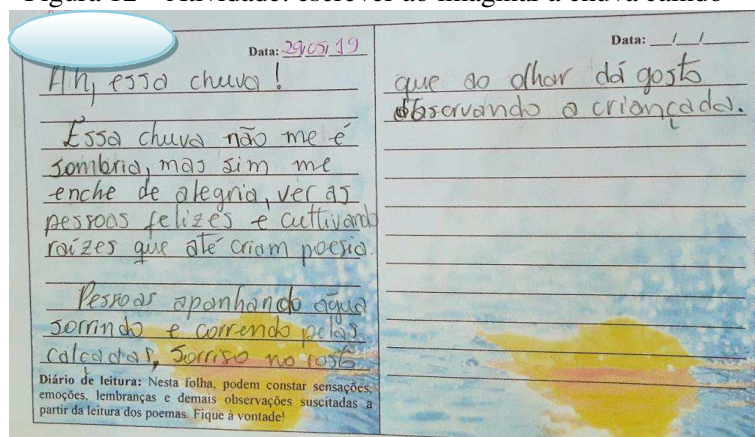 Figura 12 – Atividade: escrever ao imaginar a chuva caindo
Data: 29/05/19
Ah, essa chuva!
Essa chuva não me é
sombria, mas sim me
enche de alegria, ver as
pessoas felizes e cultivando
raízes que até criam poesia.
Pessoas apanhando água
sorrindo e correndo pelas
calçadas, sorriso no rosto
Diário de leitura: Nesta folha, podem constar sensações,
emoções, lembranças e demais observações suscitadas a
partir da leitura dos poemas. Fique à vontade!
Data: __/__/____
que ao olhar dá gosto
observando a criançada.